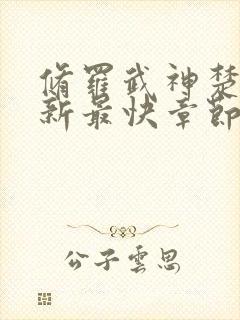 脩羅武神楚
新最快章節
公子雲思